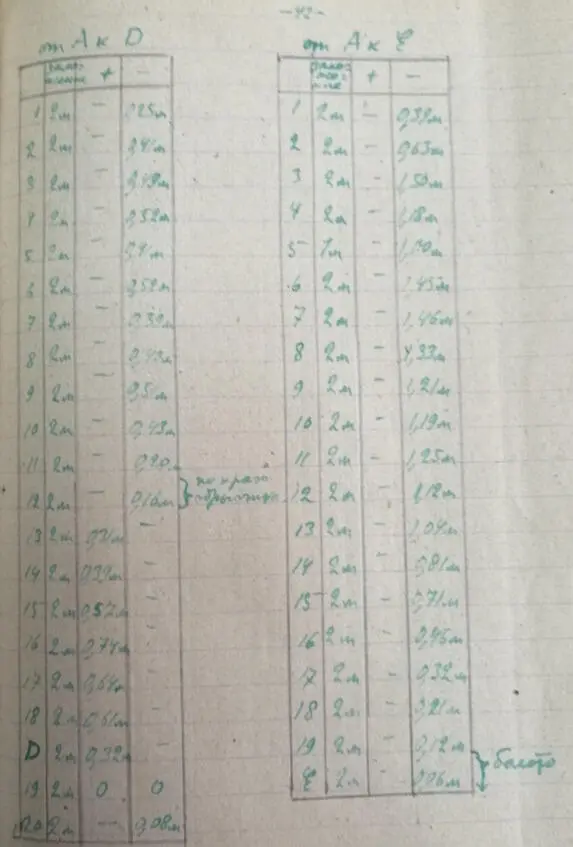 -42-
от А к D
+ -
1 2м - 0,25м
2 2м - 0,41м
3 2м - 0,49м
4 2м - 0,52м
5 2м -
6 2м - 0,52м
7 2м - 0,39м
8 2м - 0,43м
9 2м - 0,51м
10 2м - 0,43м
11 2м - 0,20м
12 2м - 0,16м
13 2м 0,31м -
14 2м 0,39м -
15 2м 0,52м -
16 2м 0,74м -
17 2м 0,64м -
18 2м 0,61м -
D 2м 0,32м -
19 2м 0 0
20 2м - 0,08м
по краю
от А к Е
+ -
1 2м - 0,39м
2 2м - 0,63м
3 2м - 1,50м
4 2м - 1,18м
5 -
6 2м - 1,45м
7 2м - 1,46м
8 2м - 1,33м
9 2м - 1,21м
10 2м - 1,19м
11 2м - 1,25м
12 2м - 1,12м
13 2м - 1,04м
14 2м - 0,81м
15 2м - 0,71м
16 2м - 0,45м
17 2м - 0,32м
18 2м - 0,21м
19 2м - 0,12м
Е 2м - 0,06м
болото